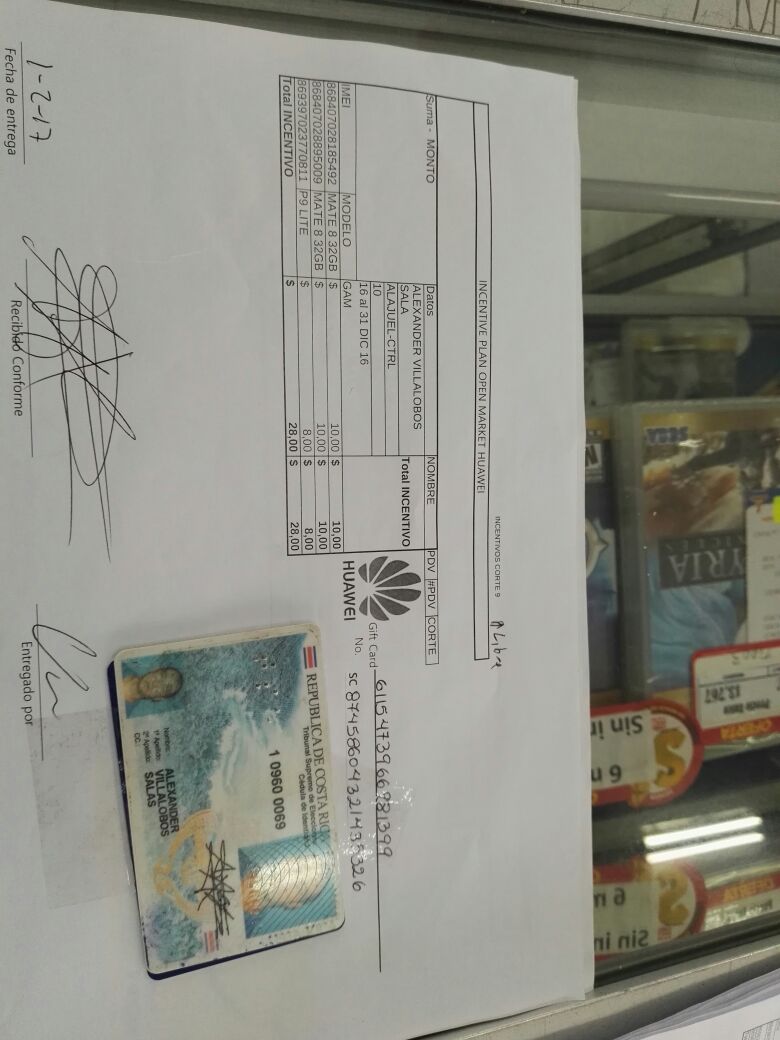 INCENTIVOS CORTE 9
# Libre
INCENTIVE PLAN OPEN MARKET HUAWEI
Suma - MONTO Datos NOMBRE PDV #PDV CORTE
ALEXANDER VILLALOBOS SALA
ALAJUEL-CTRL
10
16 al 31 DIC 16
GAM
Total INCENTIVO
IMEI MODELO
868407028185492 MATE 8 32GB $ 10,00 $ 10,00
868407028895009 MATE 8 32GB $ 10,00 $ 10,00
869397023770811 P9 LITE $ 8,00 $ 8,00
Total INCENTIVO $ 28,00 $ 28,00
HUAWEI
Gift Card 6115473966981399
No. SC
1-2-17
Fecha de entrega
Recibido Conforme
Entregado por
REPUBLICA DE COSTA RICA
Tribunal Supremo de Elecciones
Cédula de Identidad
1 0960 0069
Nombre: ALEXANDER
1° Apellido: VILLALOBOS
2° Apellido: SALAS
CC:
SEGA
OFERTA
13.767
Sin in
6 m
OFERTA
Sin in
6 m